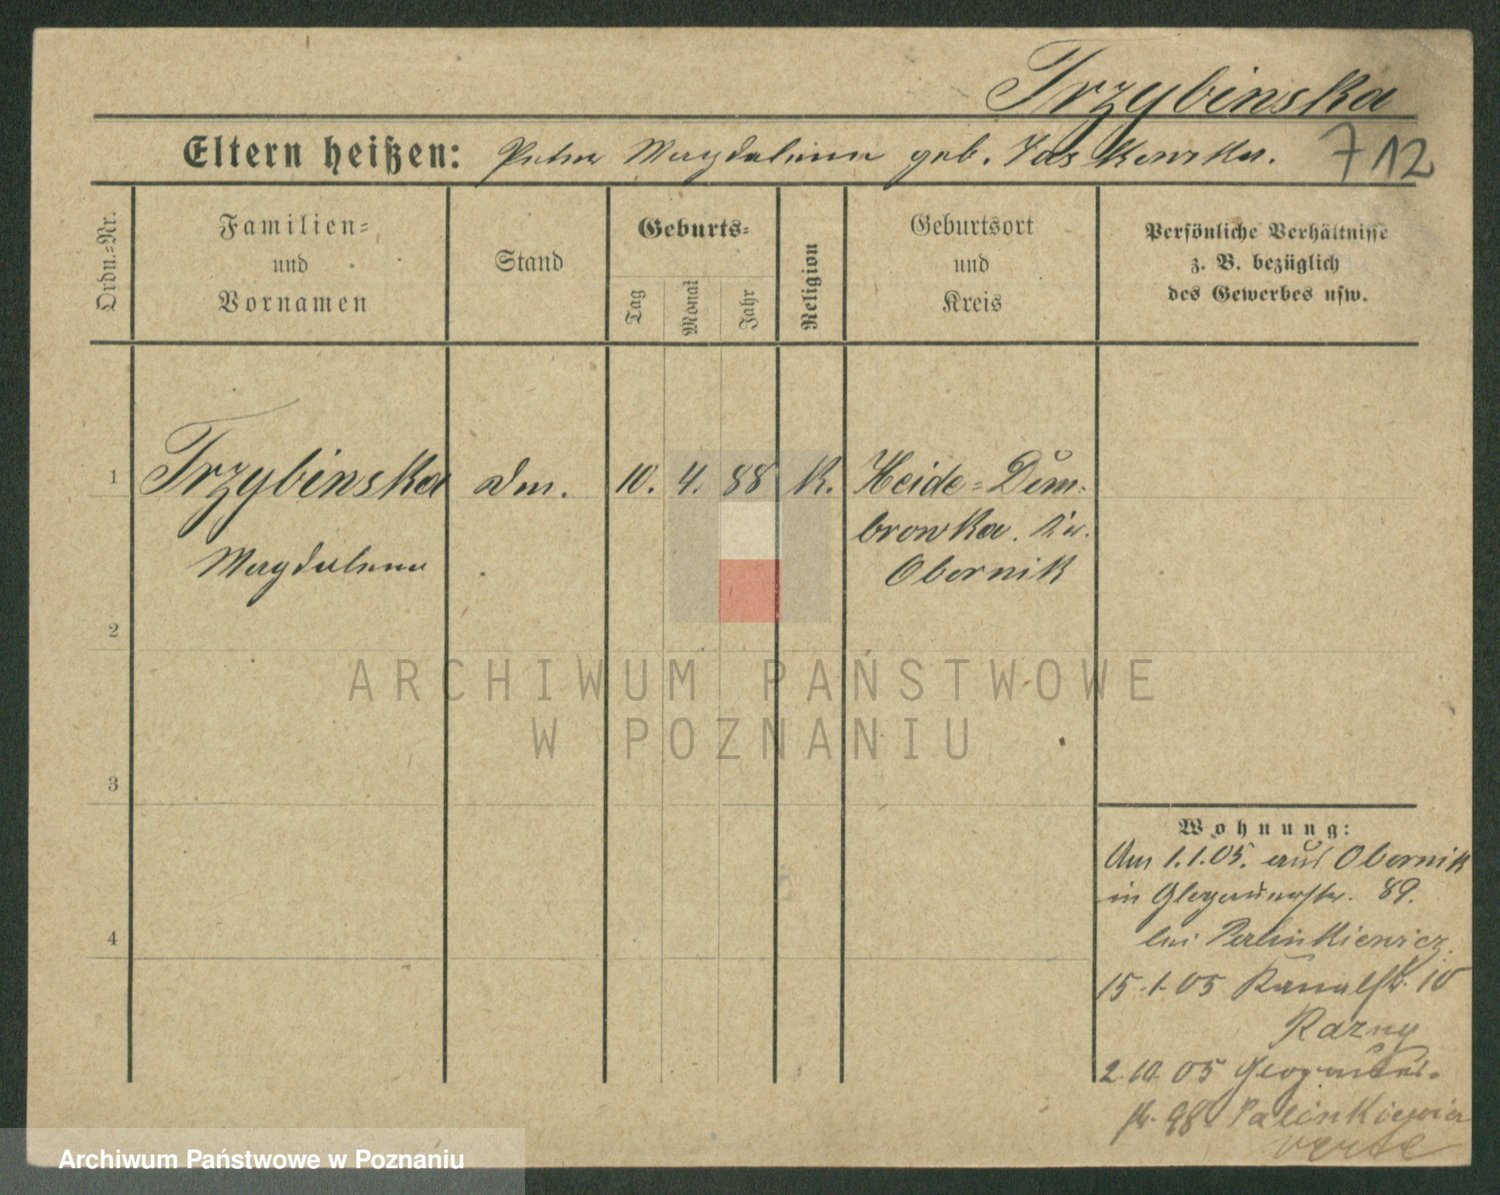 Trzybinska
Eltern heißen: Peter Magdalena geb. Jaskowska.
712
Ordn.-Nr.
Familien-
und
Vornamen
Stand
Geburts-
Tag
Monat
Jahr
Religion
Geburtsort
und
Kreis
Persönliche Verhältnisse
z. B. bezüglich
des Gewerbes usw.
1
Trzybinska
Magdalena
Dm.
10. 4. 88
K.
Heide-Dom-
browka. Kr.
Obornik
2
3
4
ARCHIWUM PAŃSTWOWE
W POZNANIU
Wohnung:
Am 1.1.05. aus Obornik
in Glogauerstr. 89.
bei
15.1.05 Kanalstr. 10
Razny
2.10.05 Glogauer-
str. 98 Palinkiewicz
verte
Archiwum Państwowe w Poznaniu